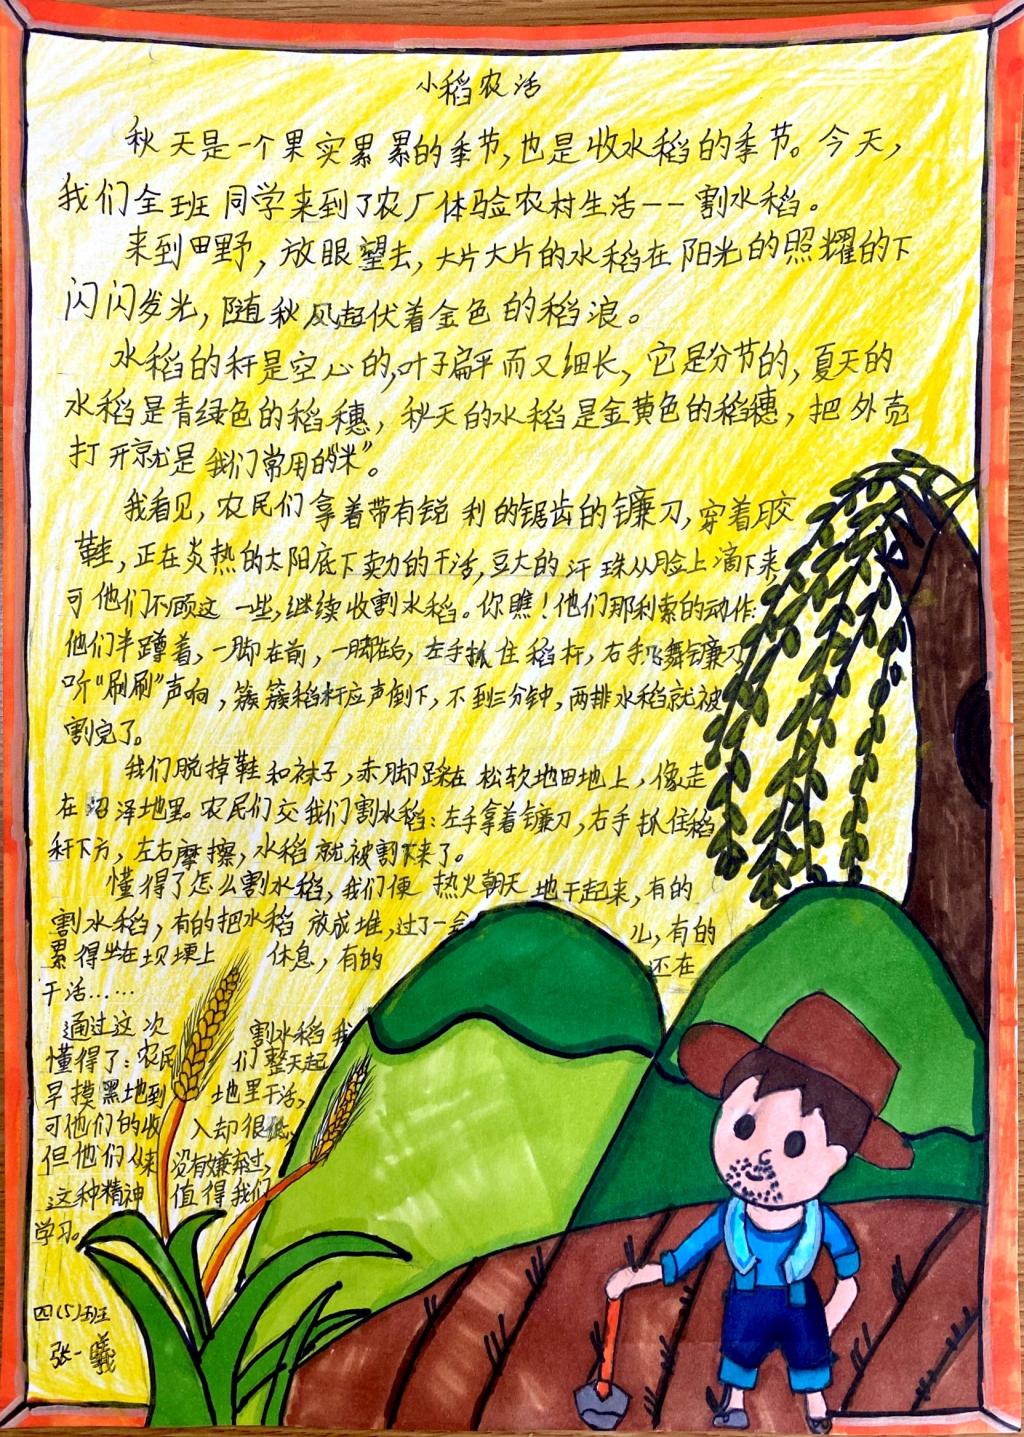 小稻农活
秋天是一个果实累累的季节,也是收水稻的季节。今天,
我们全班同学来到了农厂体验农村生活——割水稻。
来到田野,放眼望去,大片大片的水稻在阳光的照耀的下
闪闪发光,随秋风起伏着金色的稻浪。
水稻的秆是空心的,叶子扁平而又细长,它是分节的,夏天的
水稻是青绿色的稻穗,秋天的水稻是金黄色的稻穗,把外壳
打开就是我们常用的“米”。
我看见,农民们拿着带有锐利的锯齿的镰刀,穿着胶
鞋,正在炎热的太阳底下卖力的干活,豆大的汗珠从脸上滴下来,
可他们不顾这一些,继续收割水稻。你瞧!他们那利索的动作:
他们半蹲着,一脚在前,一脚在后,左手抓住稻杆,右手飞舞镰刀
听“刷刷”声响,簇簇稻杆应声倒下,不到三分钟,两排水稻就被
割完了。
我们脱掉鞋和袜子,赤脚踩在松软地田地上,像走
在沼泽地里。农民们交我们割水稻:左手拿着镰刀,右手抓住稻
秆下方,左右摩擦,水稻就被割下来了。
懂得了怎么割水稻,我们便热火朝天地干起来,有的
割水稻,有的把水稻放成堆,过了一会儿,有的
累得坐在坝埂上休息,有的还在
干活……
通过这次割水稻我
懂得了:农民们整天起
早摸黑地到地里干活,
可他们的收入却很低,
但他们从来没有嫌弃过,
这种精神值得我们
学习。
四(5)班
张一曦